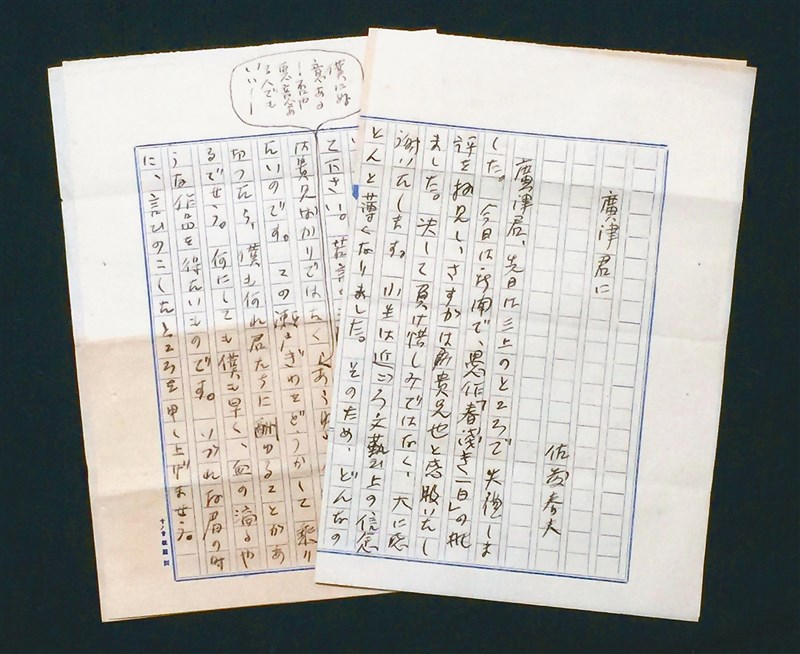 廣津君に
佐藤春夫
廣津君、先日は三上のところで失禮しま
した。今日は新聞で、愚作「春浅き一日」の批
評を拝見し、さすがは廣津貴兄也と感服いたし
ました。決して負け惜しみではなく、大に感
謝いたします。小生は近ごろ文藝の上の信念
とんと薄くなりました。そのため、どんなの
て下さい。若言と
内輪見ばかりではなく、あらゆる
たいのです。この瀬戸ぎわをどうかして乗り
切つたら、僕も何れ君たちに酬ゆることがあ
るでせう。何にしても僕も早く、血の滴るや
うな作品を得たいものです。いづれ拝眉の時
に、言ひのこしたところを申し上げませう。
僕に好
意ある
悪意あ
る人でも
いい